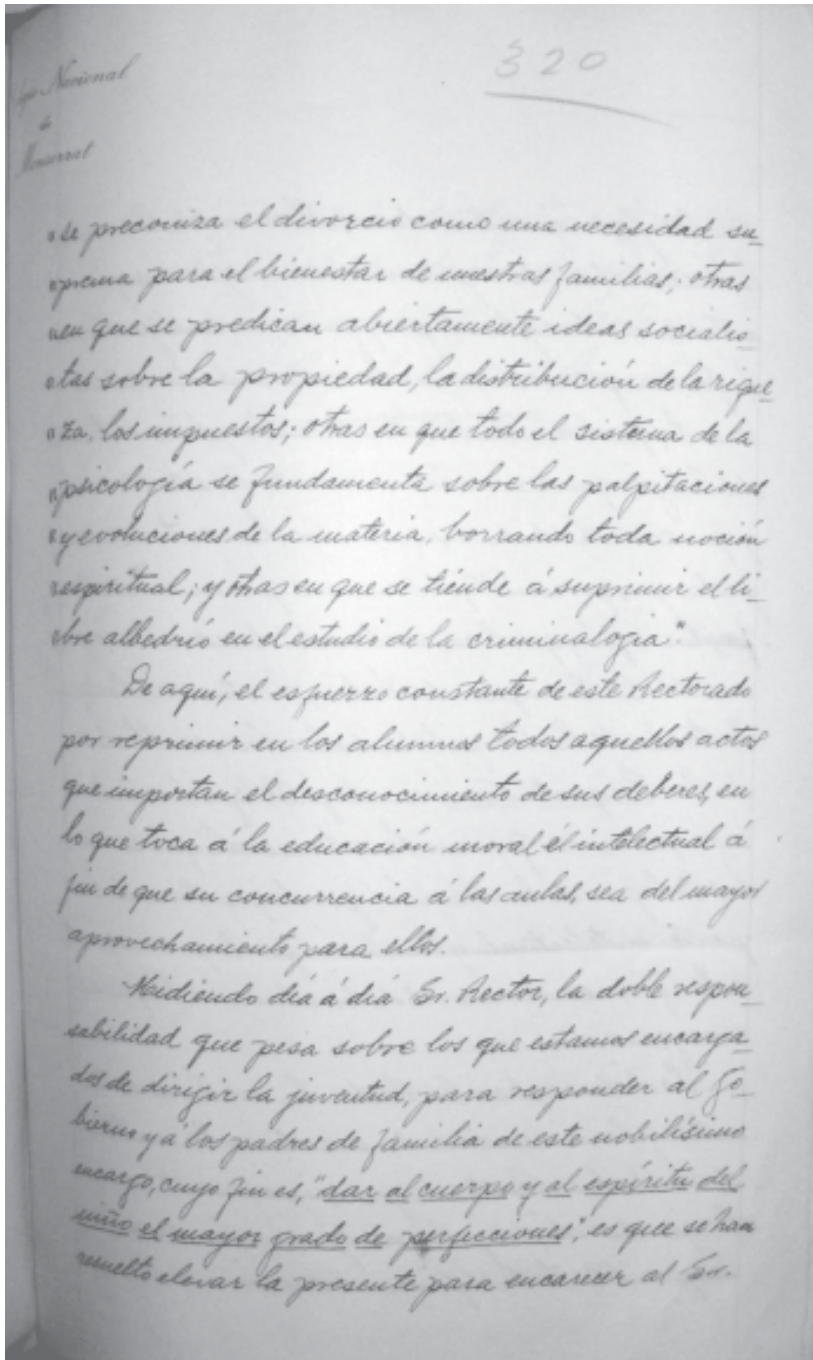 320
Nacional
de
Monserrat
"se preconiza el divorcio como una necesidad su-
"prema para el bienestar de nuestras familias; otras
"en que se predican abiertamente ideas socialis-
"tas sobre la propiedad, la distribución de la rique-
"za, los impuestos; otras en que todo el sistema de la
"psicología se fundamenta sobre las palpitaciones
"y evoluciones de la materia, borrando toda noción
"espiritual; y otras en que se tiende á suprimir el li-
"bre albedrío en el estudio de la criminalogia".
De aquí, el esfuerzo constante de este Rectorado
por reprimir en los alumnos todos aquellos actos
que importan el desconocimiento de sus deberes, en
lo que toca á la educación moral é intelectual á
fin de que su concurrencia á las aulas, sea del mayor
aprovechamiento para ellos.
Midiendo día á día Sr. Rector, la doble respon-
sabilidad que pesa sobre los que estamos encarga-
dos de dirigir la juventud, para responder al Go-
bierno y á los padres de familia de este nobilísimo
encargo, cuyo fin es, "dar al cuerpo y al espíritu del
niño el mayor grado de perfecciones", es que se han
resuelto elevar la presente para encarecer al Sr.